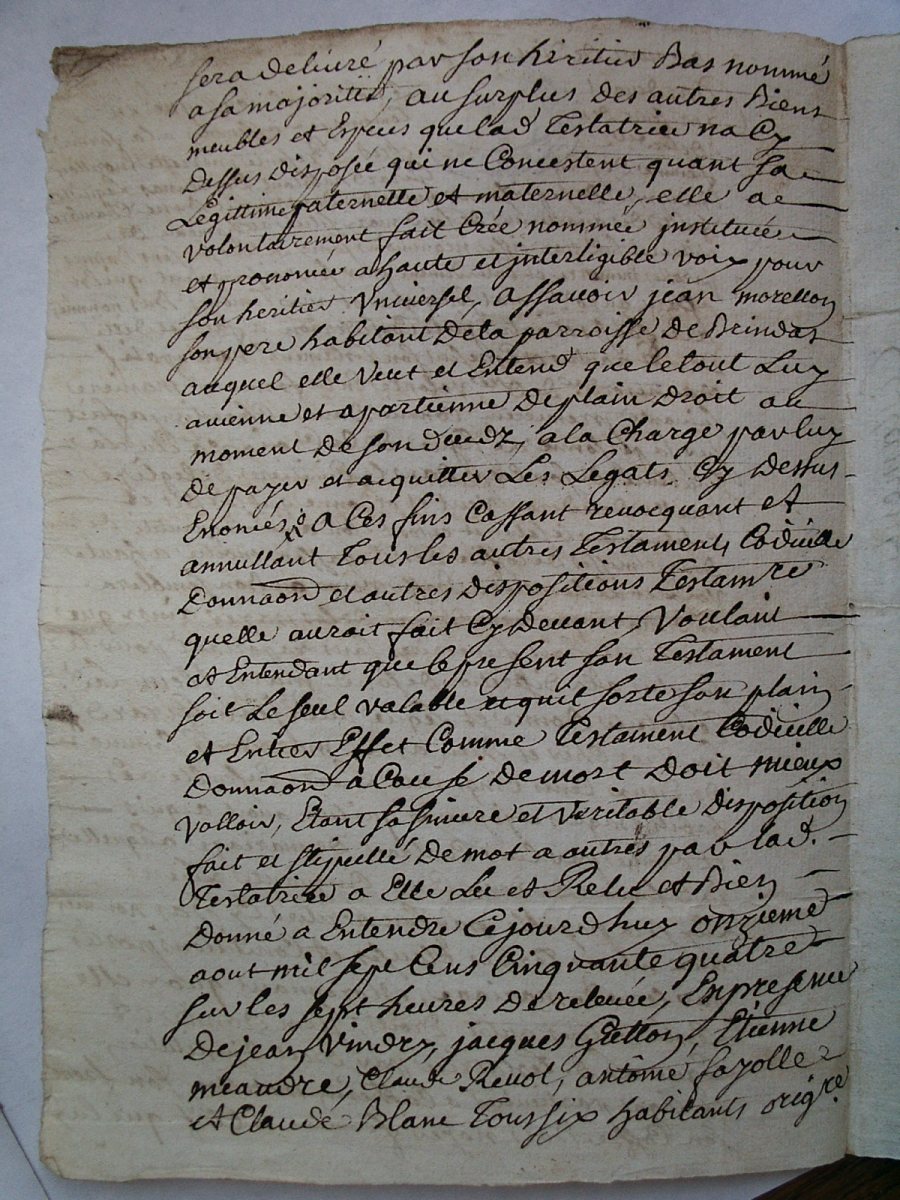 sera delivré par son heritier Bas nommé
a sa majorité, au surplus des autres Biens
meubles et Especes que lad Testatrice na Cy
Dessus disposée qui ne Concestent quant sa
Legittime paternelle et maternelle, elle a
volontairement fait Crée nommée justituée
et prononcée a haute et jnterligible voix pour
son heritier Vniversel, assavoir jean morellon
son pere habitant de la parroisse de Brindas
auquel elle Veut et Entend que le tout Luy
avienne et apartienne De plain Droit au
moment de son decedz, a la Charge par luy
de payer et acquitter Les Legats Cy Dessus
Enoncés, a Ces fins Cassant revocquant et
annullant Tous les autres Testaments Codicille
Donnaon et autres dispositions Testamre
quelle auroit fait Cy Devant, Voulant
et Entendant que le present son Testament
soit Le seul valable et quil sorte son plain
et Entier Effet Comme Testament Codicille
Donnaon a Cause De mort Doit mieux
valloir, Etant sa sincere et Veritable disposition
fait et stipullé De mot a autres par lad.
Testatrice a Elle Lu et Relu et Bien
Donné a Entendre Cejourdhuy onzieme
aout mil sept Cens Cinquante quatre
sur les sept heures De relevée, En presence
De jean Vindry, jacques Gretton, Etienne
meandre, Claude Revol, antoine fayolle
et Claude Blanc Tous six habitants orig.re